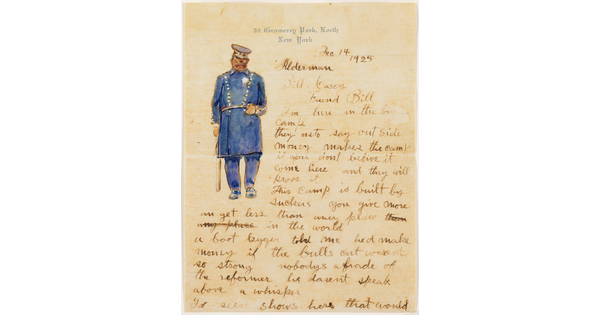 38 Gramercy Park, North
New York
Dec. 14 1925
Alderman
Bill. Casey
Friend Bill
I'm here in the
camps
they us to say out side
money makes the camp
if you dont belive it
come here and they will
prove it
This camp is built by
suckers you give more
an get less than aney place them
aney place in the world
a boot leger told me hed make
money if the bulls out was not
so strong nobodys afrade of
the reformer he dasent speak
above a whisper
I'v seen shows here that would